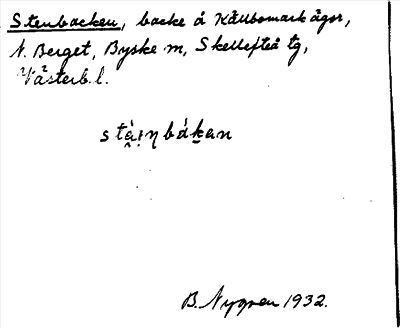 Stenbacken, backe å Källbomark ägor,
N. Berget, Byske m, Skellefteå tg,
Västerb. l.
B. Nygren 1932.